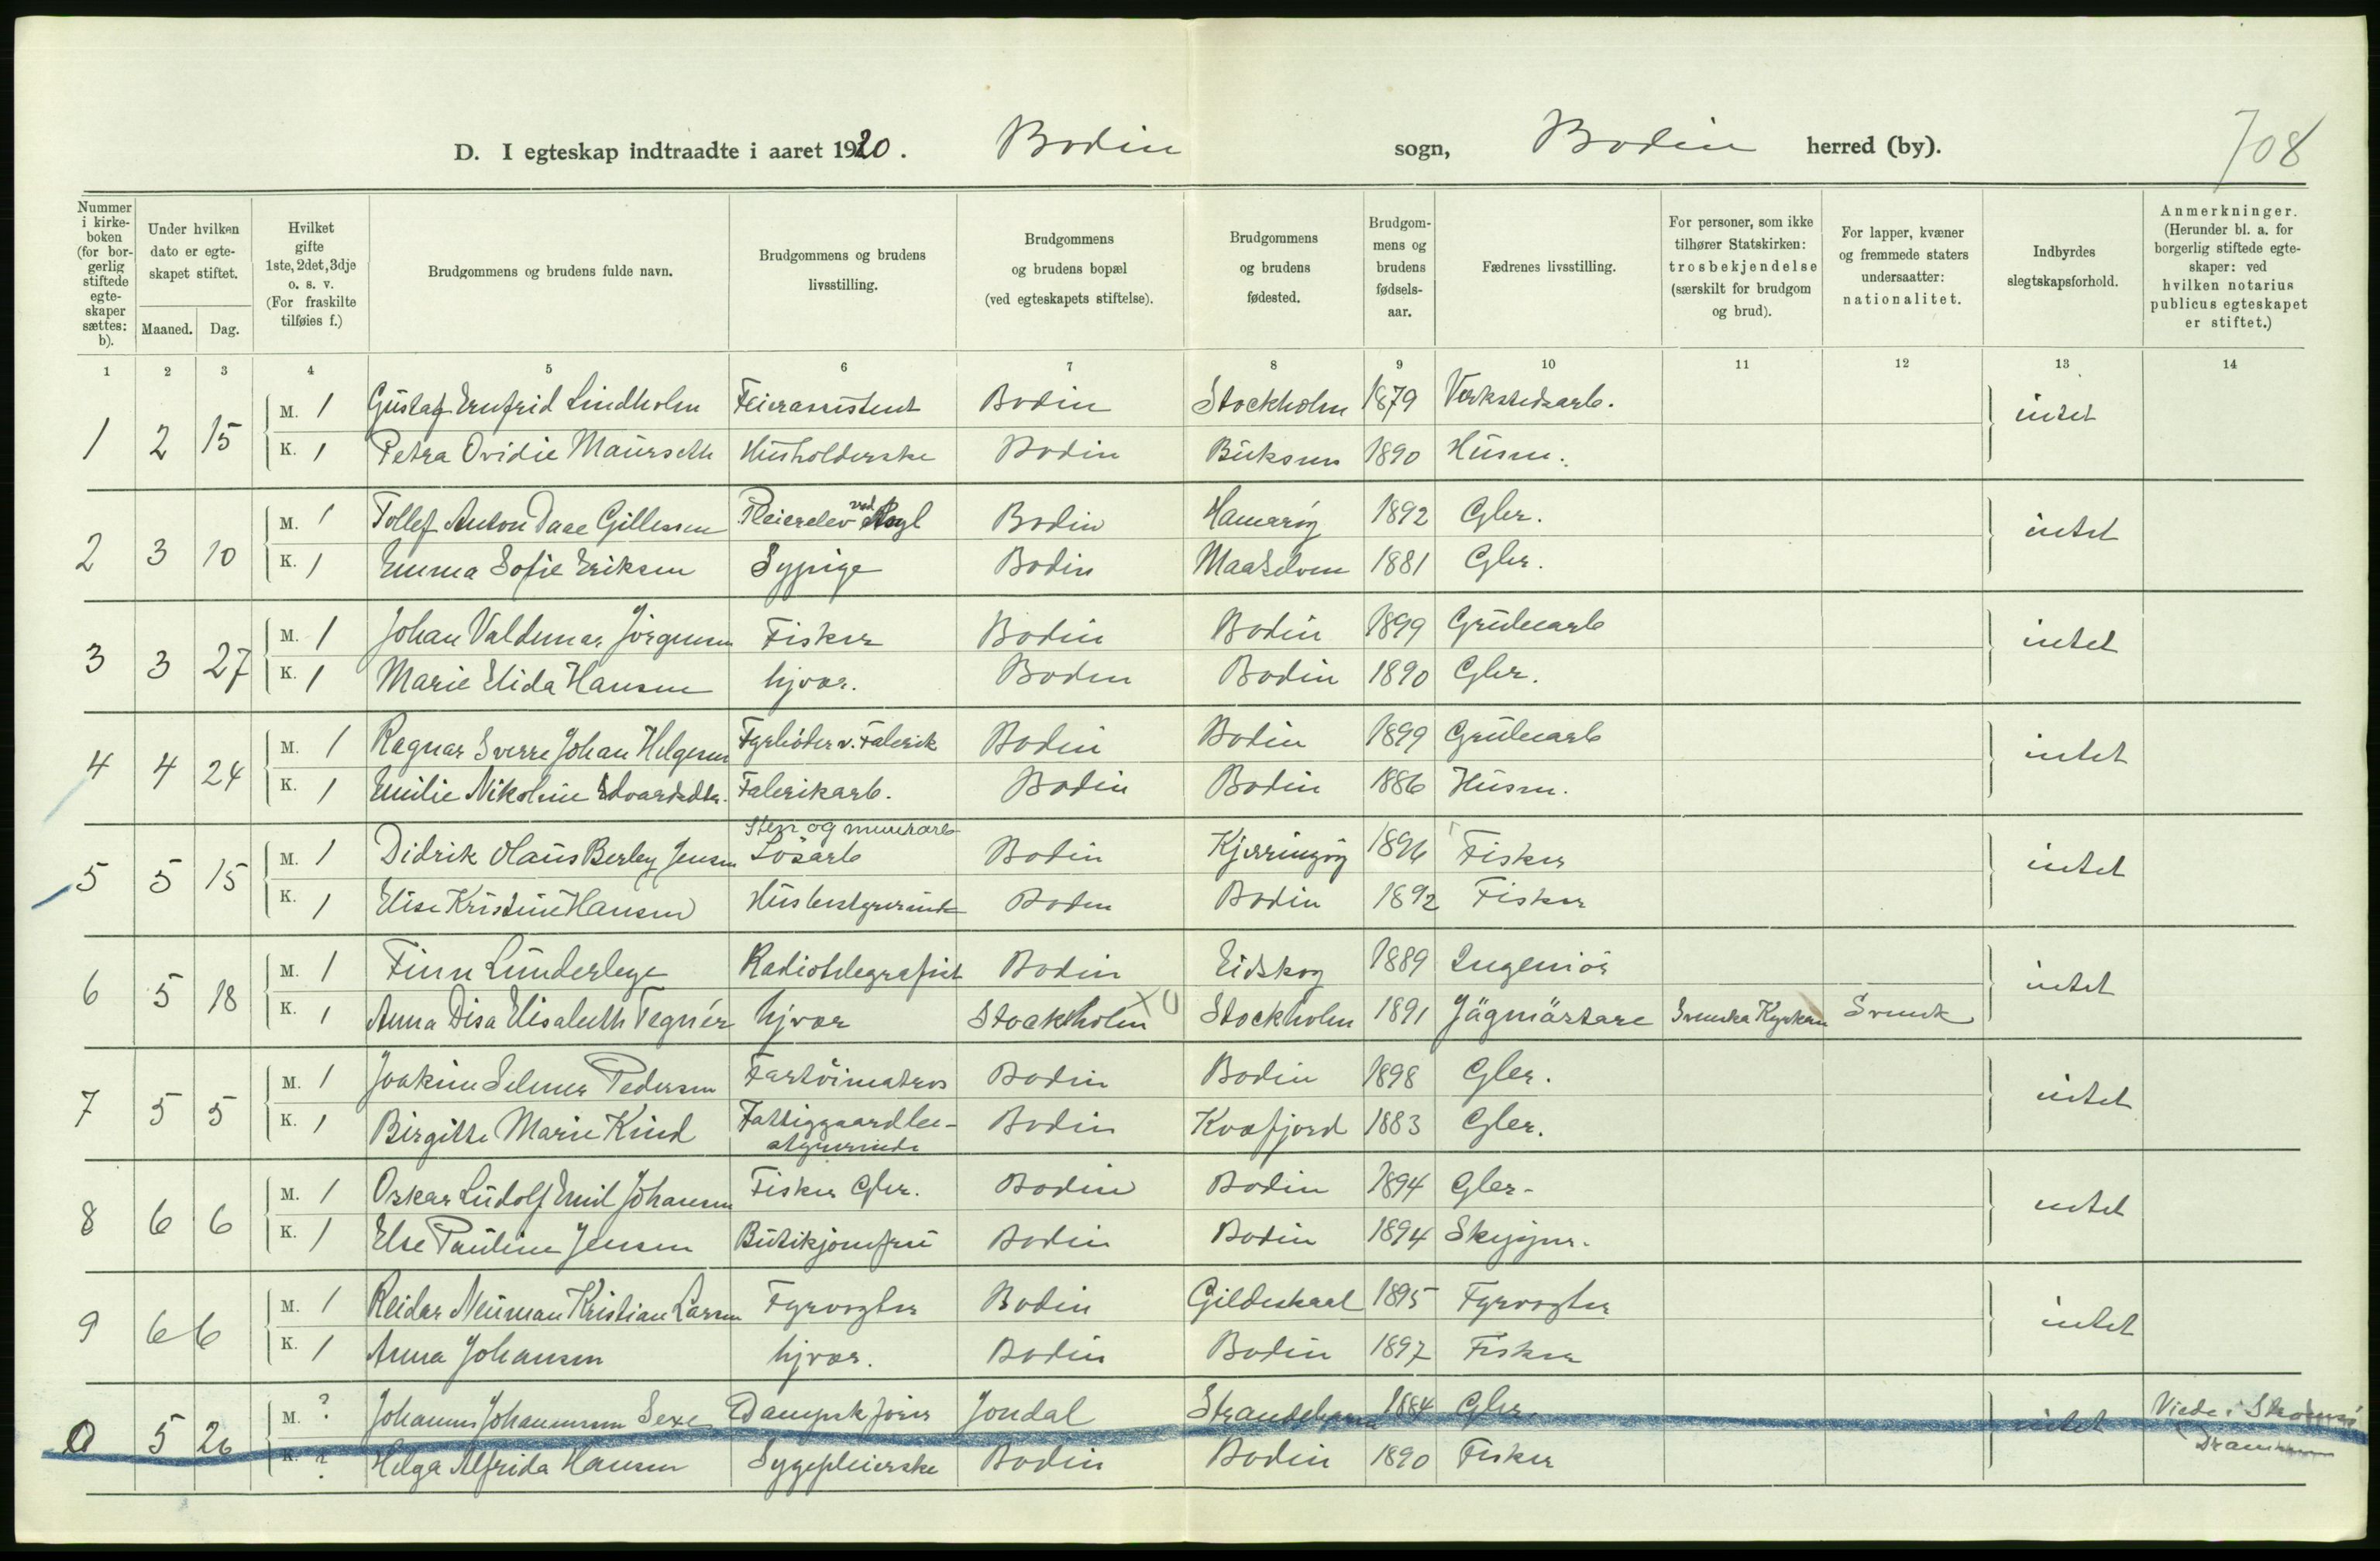 D. I egteskap indtraadte i aaret 1920. Bodin sogn, Bodin herred (by). 708
Nummer i kirkeboken (for borgerlig stiftede egteskaper sættes: b).
Under hvilken dato er egteskapet stiftet.
Maaned. Dag.
Hvilket gifte 1ste, 2det, 3dje o. s. v. (For fraskilte tilføies f.)
Brudgommens og brudens fulde navn.
Brudgommens og brudens livsstilling.
Brudgommens og brudens bopæl (ved egteskapets stiftelse).
Brudgommens og brudens fødested.
Brudgommens og brudens fødselsaar.
Fædrenes livsstilling.
For personer, som ikke tilhører Statskirken: trosbekjendelse (særskilt for brudgom og brud).
For lapper, kvæner og fremmede staters undersaatter: nationalitet.
Indbyrdes slegtskapsforhold.
Anmerkninger. (Herunder bl. a. for borgerlig stiftede egteskaper: ved hvilken notarius publicus egteskapet er stiftet.)
1 2 3 4 5 6 7 8 9 10 11 12 13 14
1 2 15 M. 1 Gustaf Ernfrid Lindholm Feierassistent Bodin Stockholm 1879 Verkstedsarb. intet
K. 1 Petra Ovidie Maurseth Husholderske Bodin Buksnes 1890 Husm.
2 3 10 M. 1 Tollef Anton Daae Gillessen Pleierelev ved Bodin Hamarøy 1892 Gbr. intet
K. 1 Emma Sofie Eriksen Sypige Bodin Maaselven 1881 Gbr.
3 3 27 M. 1 Johan Valdemar Jörgensen Fisker Bodin Bodin 1899 Grubearb intet
K. 1 Marie Elida Hansen hjvær. Bodin Bodin 1890 Gbr.
4 4 24 M. 1 Ragnar Sverre Johan Helgesen Fyrböter v. Fabrik Bodin Bodin 1899 Grubearb intet
K. 1 Emilie Nikoline Edvardsdtr. Fabrikarb. Bodin Bodin 1886 Husm.
Sten og murarb
5 5 15 M. 1 Didrik Olaus Berley Jensen Løsarb Bodin Kjerringøy 1896 Fisker intet
K. 1 Elise Kristine Hansen Husbestyrerinde Bodin Bodin 1892 Fisker
6 5 18 M. 1 Finn Lunderbye Radiotelegrafist Bodin Eidskog 1889 Ingeniör intet
K. 1 Anna Disa Elisabeth Tegnér hjvær Stockholm Stockholm 1891 Jägmästare Svenska Kyrkan Svensk
7 5 5 M. 1 Joakim Selmer Pedersen Fartöimatros Bodin Bodin 1898 Gbr. intet
K. 1 Birgitte Marie Kind Fattiggaardbe- Bodin Kvæfjord 1883 Gbr.
styrerinde
8 6 6 M. 1 Oskar Ludolf Emil Johansen Fisker Gbr. Bodin Bodin 1894 Gbr- intet
K. 1 Else Pauline Jensen Butikjomfru Bodin Bodin 1894 Skipper.
9 6 6 M. 1 Reidar Neuman Kristian Larsen Fyrvogter Bodin Gildeskaal 1895 Fyrvogter intet
K. 1 Anna Johansen hjvær. Bodin Bodin 1897 Fisker
0 5 26 M. ? Johannes Johannessen Sexe Dampskförer Jondal Strandebarm 1884 Gbr. intet Viede i Strömsö
K. ? Helga Alfrida Hansen Sygepleierske Bodin Bodin 1890 Fisker Drammen